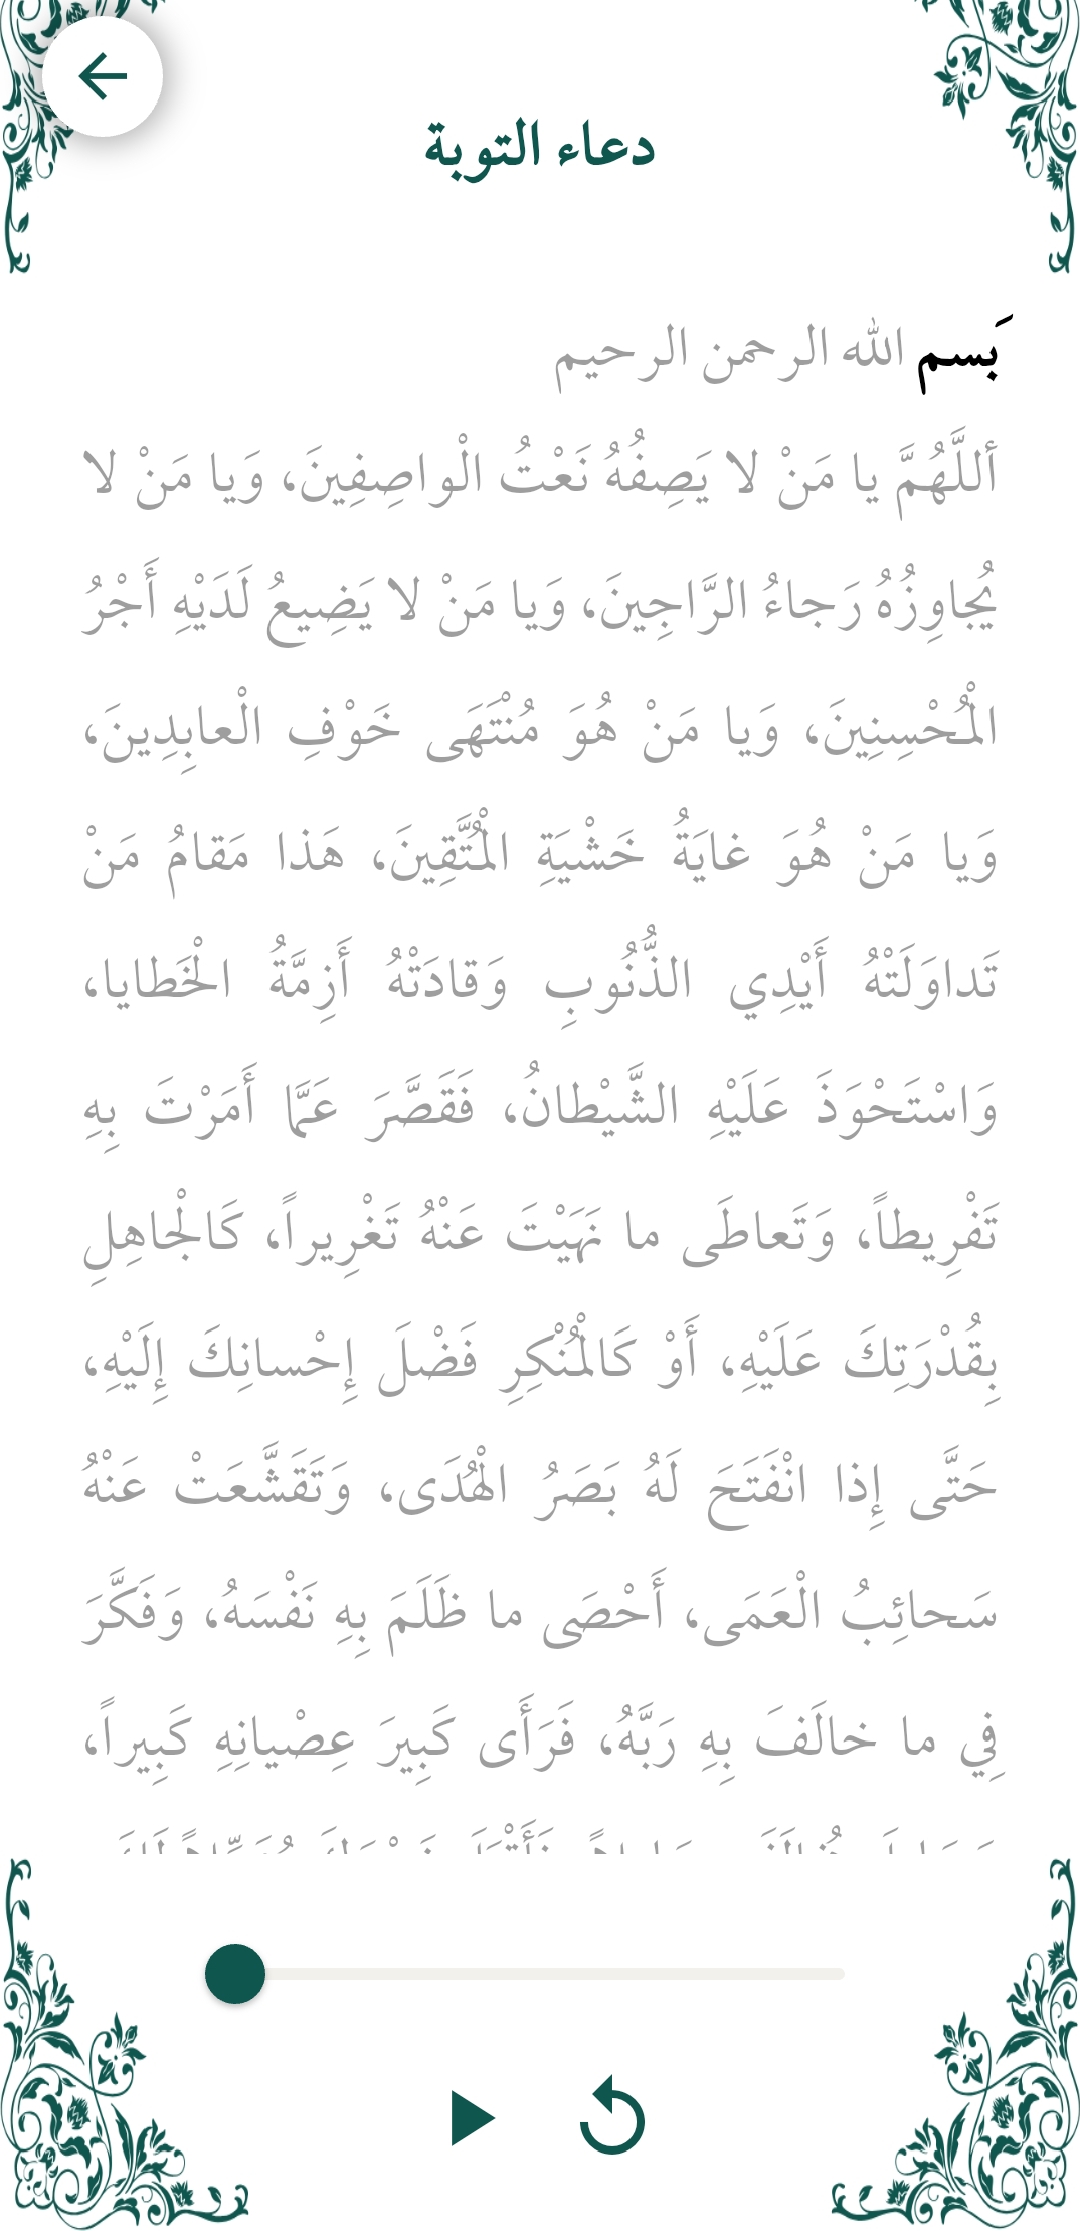 دعاء التوبة
بَسم الله الرحمن الرحيم
أللَّهُمَّ يا مَنْ لا يَصِفُهُ نَعْتُ الْواصِفِينَ، وَيا مَنْ لا
يُجاوِزُهُ رَجاءُ الرَّاجِينَ، وَيا مَنْ لا يَضِيعُ لَدَيْهِ أَجْرُ
الْمُحْسِنِينَ، وَيا مَنْ هُوَ مُنْتَهَى خَوْفِ الْعابِدِينَ،
وَيا مَنْ هُوَ غايَةُ خَشْيَةِ الْمُتَّقِينَ، هَذا مَقامُ مَنْ
تَداوَلَتْهُ أَيْدِي الذُّنُوبِ وَقادَتْهُ أَزِمَّةُ الْخَطايا،
وَاسْتَحْوَذَ عَلَيْهِ الشَّيْطانُ، فَقَصَّرَ عَمَّا أَمَرْتَ بِهِ
تَفْرِيطاً، وَتَعاطَى ما نَهَيْتَ عَنْهُ تَغْرِيراً، كَالْجاهِلِ
بِقُدْرَتِكَ عَلَيْهِ، أَوْ كَالْمُنْكِرِ فَضْلَ إِحْسانِكَ إِلَيْهِ،
حَتَّى إِذا انْفَتَحَ لَهُ بَصَرُ الْهُدَى، وَتَقَشَّعَتْ عَنْهُ
سَحائِبُ الْعَمَى، أَحْصَى ما ظَلَمَ بِهِ نَفْسَهُ، وَفَكَّرَ
فِي ما خالَفَ بِهِ رَبَّهُ، فَرَأَى كَبِيرَ عِصْيانِهِ كَبِيراً،